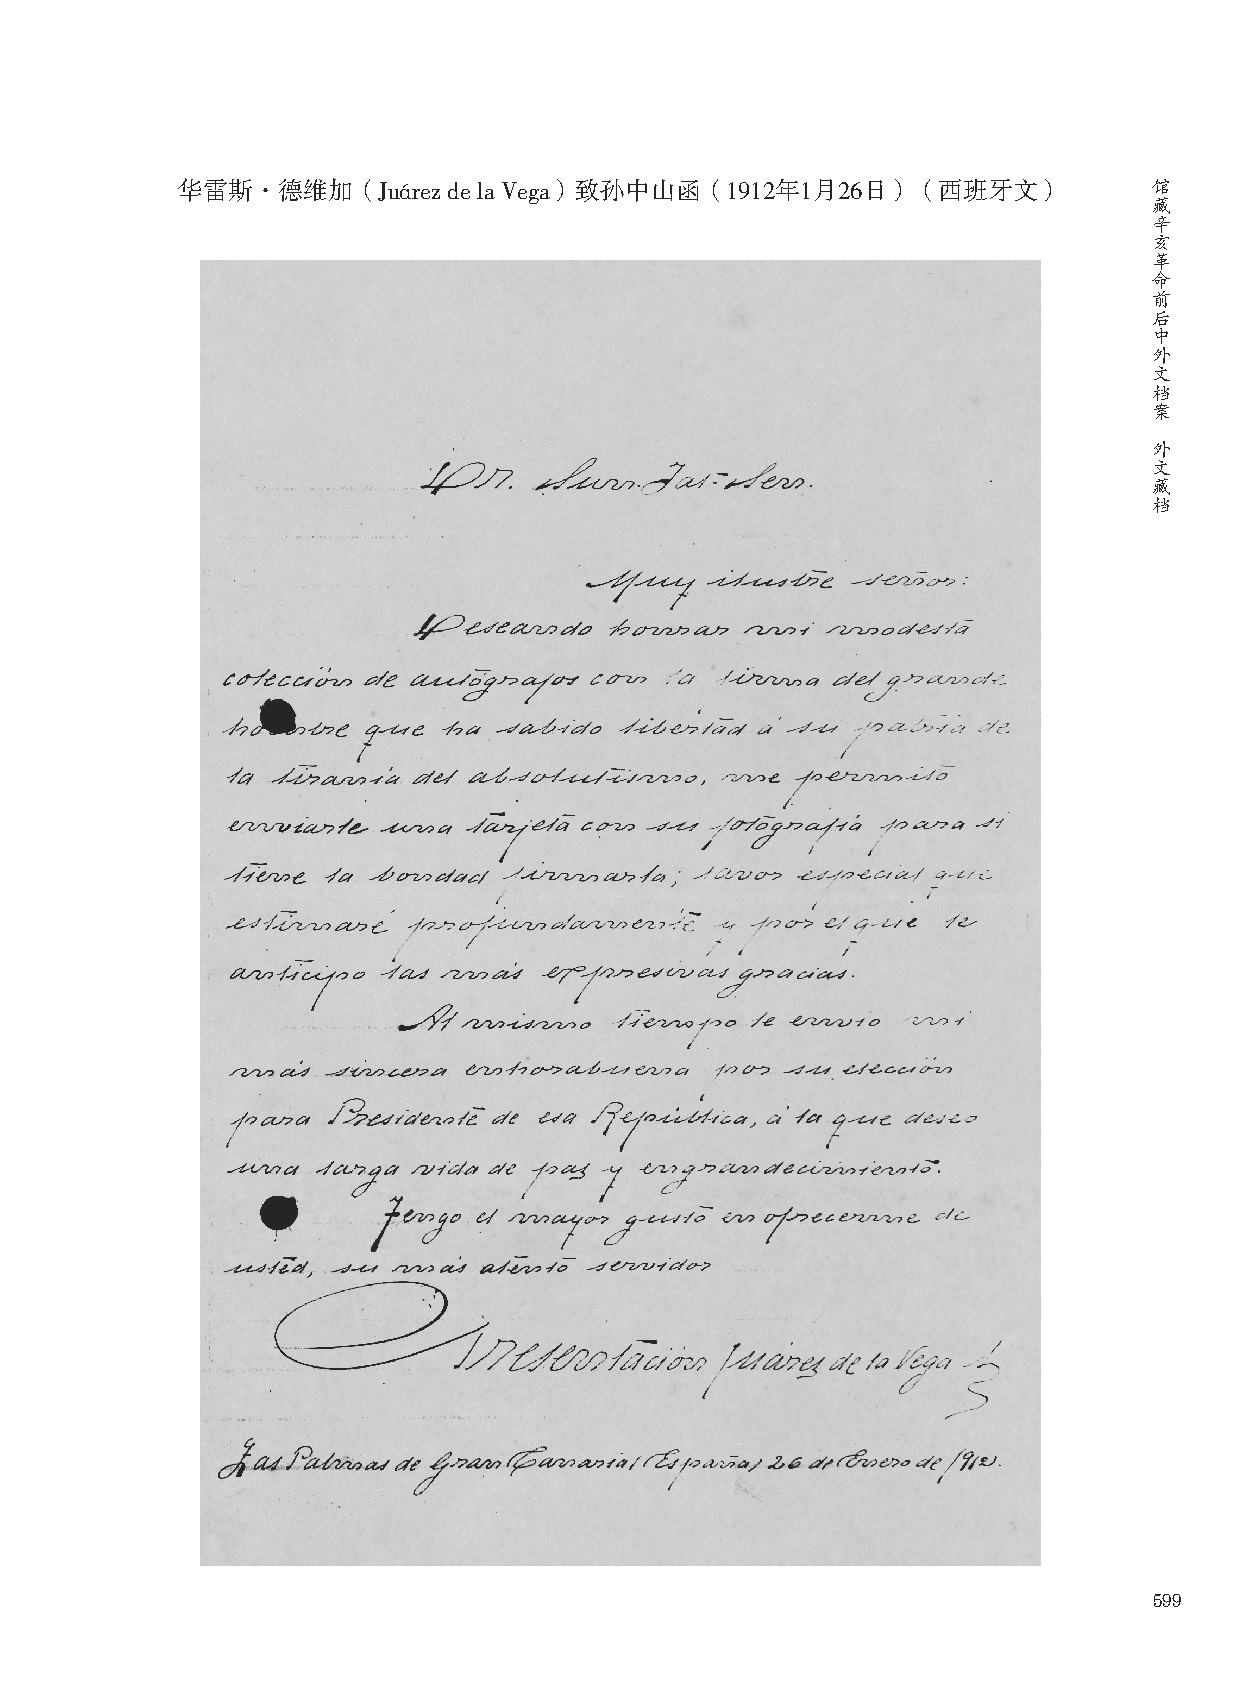 华雷斯·德维加（Juárez de la Vega）致孙中山函（1912年1月26日）（西班牙文）
馆藏辛亥革命前后中外文档案 外文藏档
Dr. Sun-Jat-Sen.
Muy ilustre señor:
Deseando honrar mi modesta
colección de autógrafos con la firma del grande
hombre que ha sabido libertad á su patria de
la tiranía del absolutismo, me permito
enviarle una tarjeta con su fotografía para si
tiene la bondad firmarla; favor especial que
estimaré profundamente y por el que le
anticipo las más expresivas gracias.
Al mismo tiempo le envío mi
más sincera enhorabuena por su elección
para Presidente de esa República, á la que deseo
una larga vida de paz y engrandecimiento.
Tengo el mayor gusto en ofrecerme de
usted, su más atento servidor
Presentación Juárez de la Vega
Las Palmas de Gran Canaria, España, 26 de Enero de 1912.
599